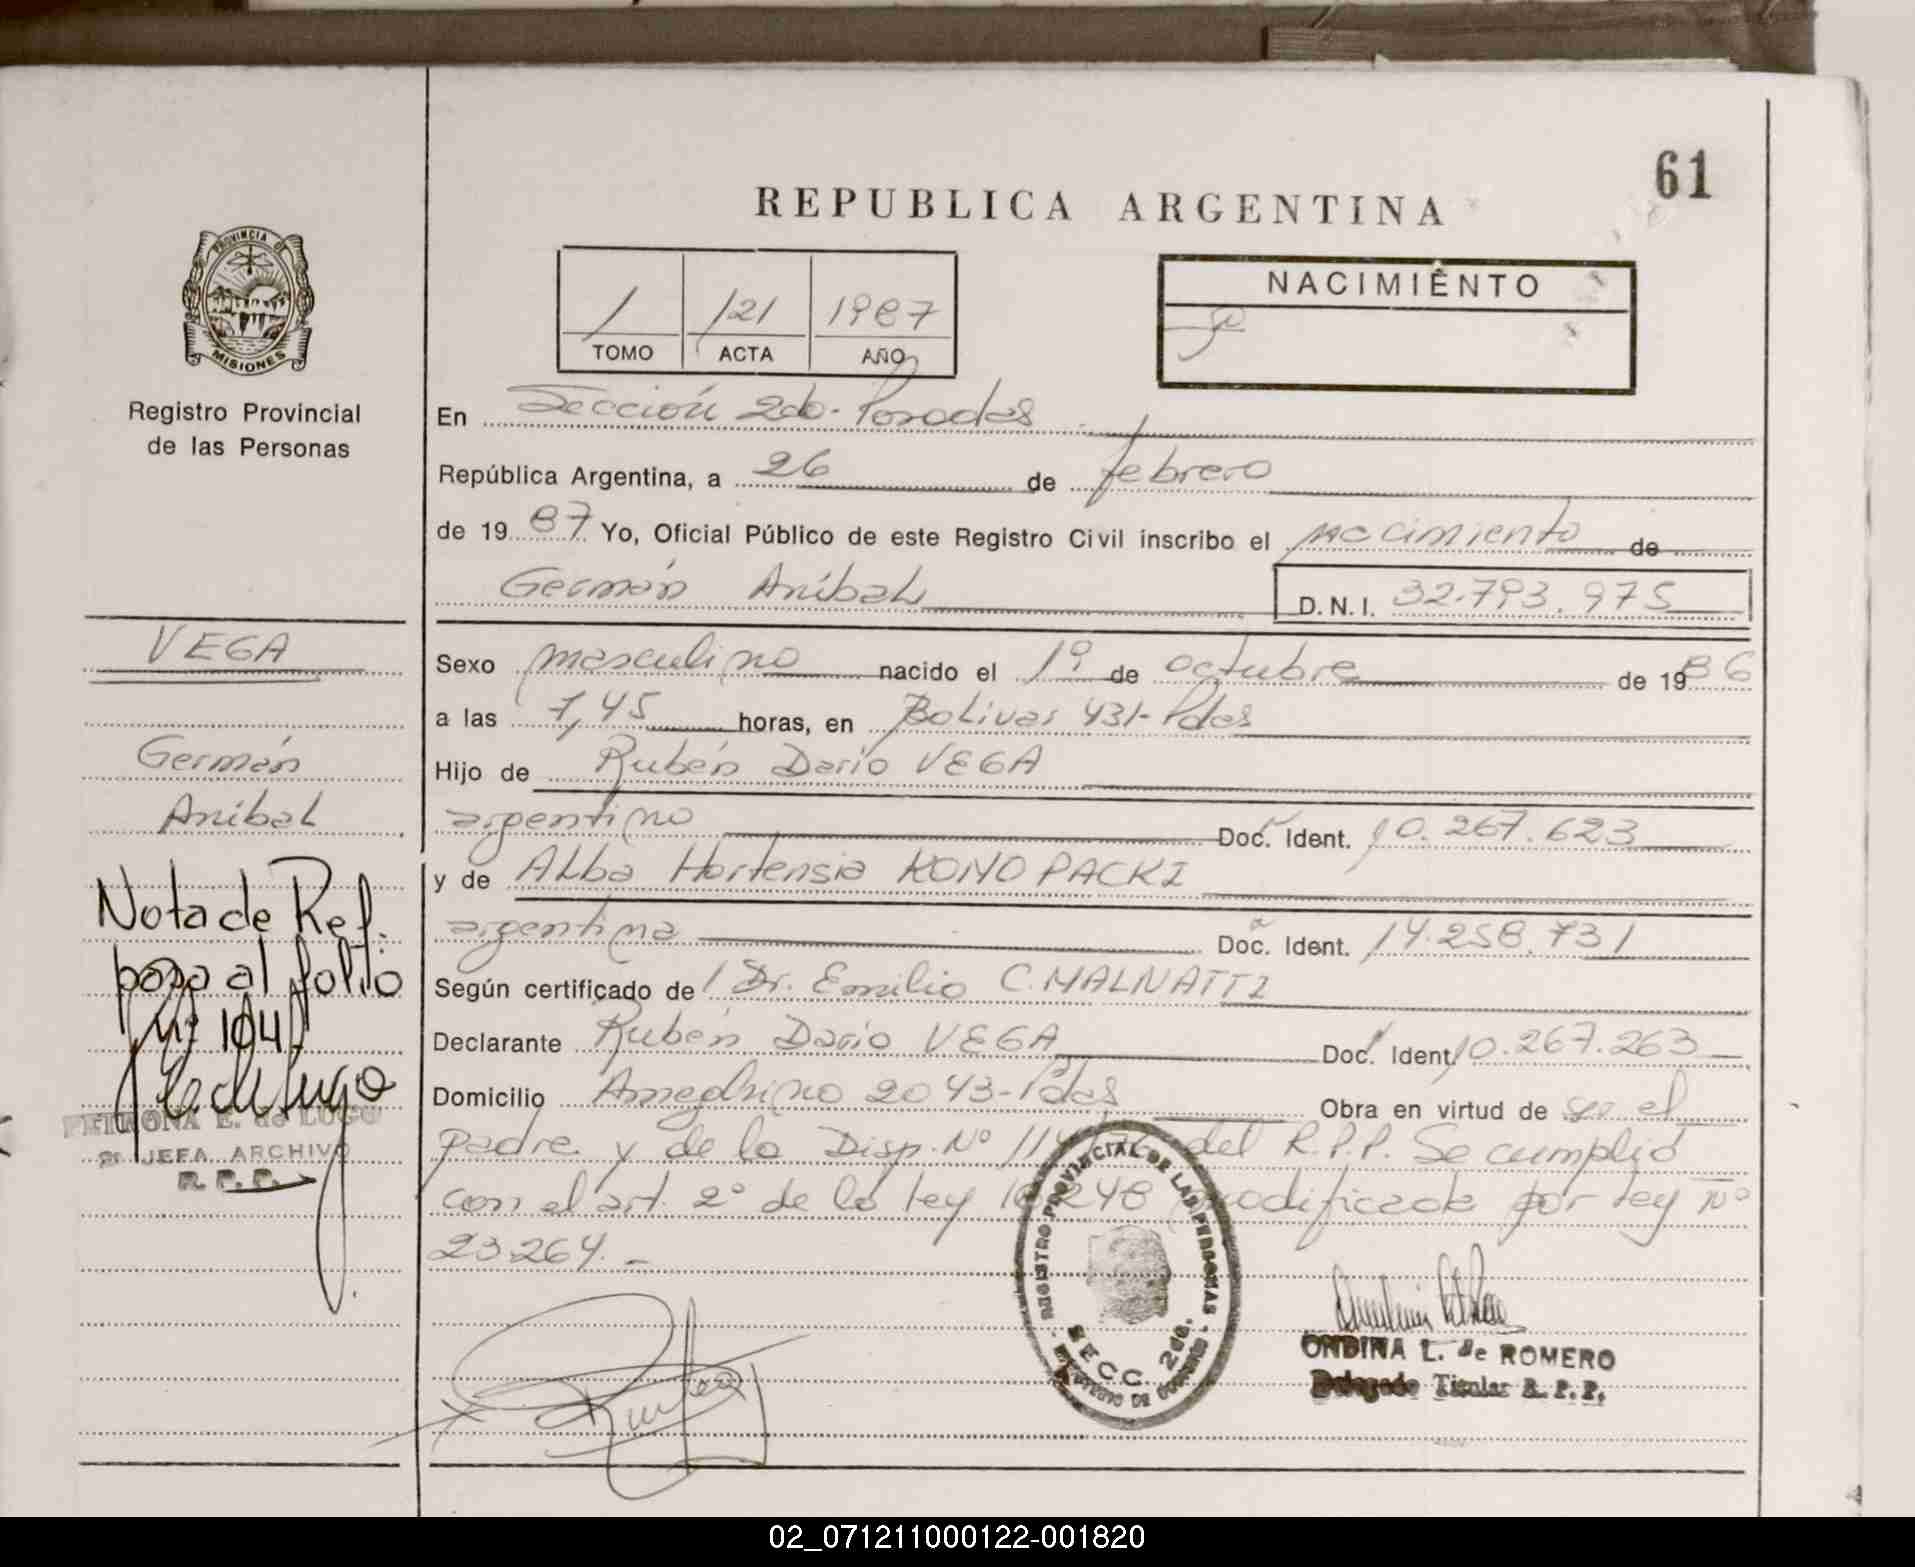 61
REPUBLICA ARGENTINA
PROVINCIA DE
MISIONES
Registro Provincial
de las Personas
1 121 1987
TOMO ACTA AÑO
NACIMIENTO
En Sección 2da- Posadas
República Argentina, a 26 de febrero
de 1987 Yo, Oficial Público de este Registro Civil inscribo el nacimiento de
Germán Aníbal D.N.I. 32.793.975
VEGA
Germán
Aníbal
Sexo masculino nacido el 1º de octubre de 1986
a las 7,45 horas, en Bolivar 431- Pdas
Hijo de Rubén Dario VEGA
argentino Doc. Ident. 10.267.623
y de Alba Hortensia KONOPACKI
argentina Doc. Ident. 14.258.731
Según certificado de Dr. Emilio C. MALNATTI
Declarante Rubén Dario VEGA Doc. Ident. 10.267.263
Domicilio 2043- Pdas Obra en virtud de ser el
padre y de la Disp. Nº del R.P.P. Se cumplió
con el art. 2º de la ley 18248 modificada por ley Nº
23264.-
Nota de Ref.
pasa al folio
Nº 104
PETRONA E. de LUGO
JEFA ARCHIVO
R. P. P.
REGISTRO PROVINCIAL DE LAS PERSONAS
SECC 2da.
MINISTERIO DE GOBIERNO
ONDINA L. de ROMERO
Delegada Titular R. P. P.
02_071211000122-001820